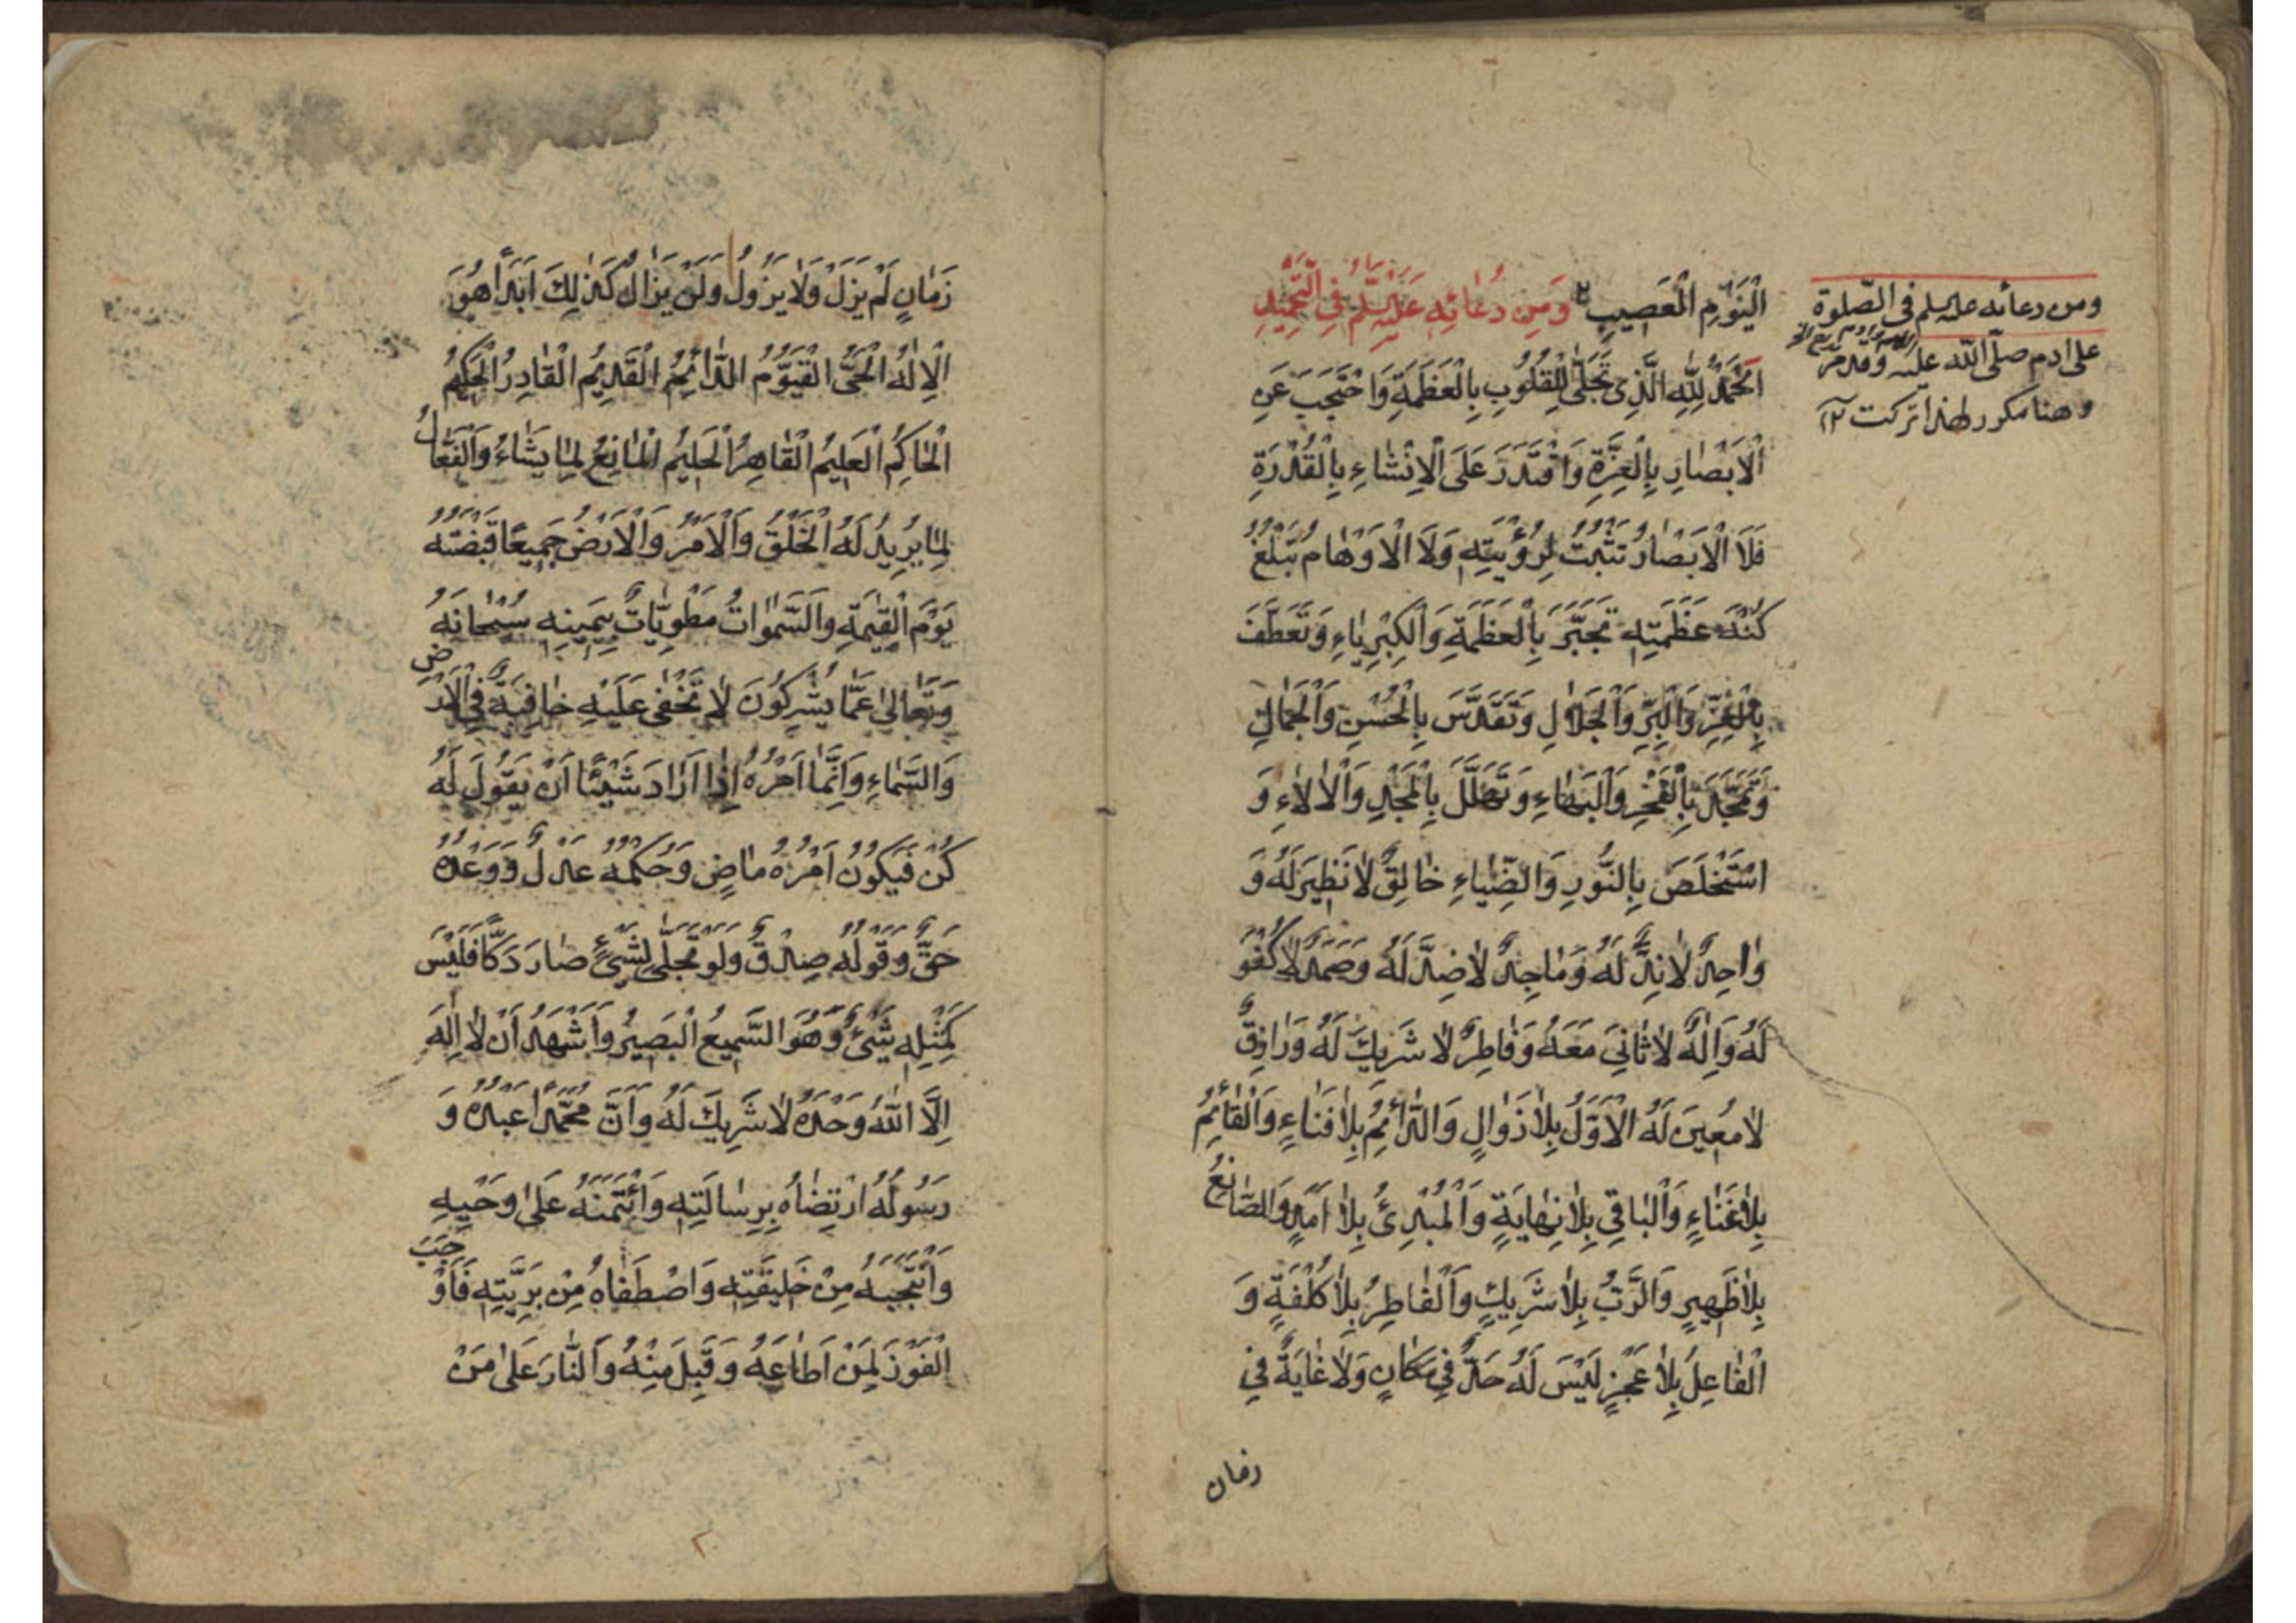 الْيَوْمِ الْعَصِيبِ وَمِن دُعَائِهِ عَلَيْهِ السَّلَمُ فِي التَّحْمِيدِ
اَلْحَمْدُ لِلّٰهِ الَّذِي تَجَلّٰى لِلْقُلُوبِ بِالْعَظَمَةِ وَاحْتَجَبَ عَنِ
الْاَبْصَارِ بِالْعِزَّةِ وَاقْتَدَرَ عَلَى الْاِنْشَاءِ بِالْقُدْرَةِ
فَلَا الْاَبْصَارُ تَثْبُتُ لِرُؤْيَتِهِ وَلَا الْاَوْهَامُ تَبْلُغُ
كُنْهَ عَظَمَتِهِ تَجَبَّرَ بِالْعَظَمَةِ وَالْكِبْرِيَاءِ وَتَعَطَّفَ
بِالْعِزِّ وَالْبِرِّ وَالْجَلَالِ وَتَقَدَّسَ بِالْحُسْنِ وَالْجَمَالِ
وَتَمَجَّدَ بِالْفَخْرِ وَالْبَهَاءِ وَتَهَلَّلَ بِالْمَجْدِ وَالْاٰلَاءِ وَ
اسْتَخْلَصَ بِالنُّورِ وَالضِّيَاءِ خَالِقٌ لَا نَظِيرَ لَهُ وَ
وَاحِدٌ لَا نِدَّ لَهُ وَمَاجِدٌ لَا ضِدَّ لَهُ وَصَمَدٌ لَا كُفْوَ
لَهُ وَاِلٰهٌ لَا ثَانِيَ مَعَهُ وَفَاطِرٌ لَا شَرِيكَ لَهُ وَرَازِقٌ
لَا مُعِينَ لَهُ الْاَوَّلُ بِلَا زَوَالٍ وَالدَّائِمُ بِلَا فَنَاءٍ وَالْقَائِمُ
بِلَا عَنَاءٍ وَالْبَاقِي بِلَا نِهَايَةٍ وَالْمُبْدِئُ بِلَا اَمَدٍ وَالصَّانِعُ
بِلَا ظَهِيرٍ وَالرَّبُّ بِلَا شَرِيكٍ وَالْفَاطِرُ بِلَا كُلْفَةٍ وَ
الْفَاعِلُ بِلَا عَجْزٍ لَيْسَ لَهُ حَدٌّ فِي مَكَانٍ وَلَا غَايَةٌ فِي
زمان
ومن دعائه عليه السلم في الصّلوة
على ادم صلّى اللّه عليه وقد مرّ
وهنا مكرر لهذا تركت ١٢
زَمَانٍ لَمْ يَزَلْ وَلَا يَزُولُ وَلَنْ يَزَالَ كَذٰلِكَ اَبَدًا هُوَ
الْاِلٰهُ الْحَيُّ الْقَيُّومُ الدَّائِمُ الْقَدِيمُ الْقَادِرُ الْحَكِيمُ
الْحَاكِمُ الْعَلِيمُ الْقَاهِرُ الْحَلِيمُ الْمَانِعُ لِمَا يَشَاءُ وَالْفَعَّالُ
لِمَا يُرِيدُ لَهُ الْخَلْقُ وَالْاَمْرُ وَالْاَرْضُ جَمِيعًا قَبْضَتُهُ
يَوْمَ الْقِيٰمَةِ وَالسَّمٰوَاتُ مَطْوِيَّاتٌ بِيَمِينِهِ سُبْحَانَهُ
وَتَعَالٰى عَمَّا يُشْرِكُونَ لَا تَخْفٰى عَلَيْهِ خَافِيَةٌ فِي الْاَرْضِ
وَالسَّمَاءِ وَاِنَّمَا اَمْرُهُ اِذَا اَرَادَ شَيْئًا اَنْ يَقُولَ لَهُ
كُنْ فَيَكُونُ اَمْرُهُ مَاضٍ وَحُكْمُهُ عَدْلٌ وَوَعْدُهُ
حَقٌّ وَقَوْلُهُ صِدْقٌ وَلَوْ تَجَلّٰى لِشَيْءٍ صَارَ دَكًّا فَلَيْسَ
كَمِثْلِهِ شَيْءٌ وَهُوَ السَّمِيعُ الْبَصِيرُ وَاَشْهَدُ اَنْ لَا اِلٰهَ
اِلَّا اللّٰهُ وَحْدَهُ لَا شَرِيكَ لَهُ وَاَنَّ مُحَمَّدًا عَبْدُهُ وَ
رَسُولُهُ ارْتَضَاهُ بِرِسَالَتِهِ وَائْتَمَنَهُ عَلٰى وَحْيِهِ
وَانْتَجَبَهُ مِنْ خَلِيقَتِهِ وَاصْطَفَاهُ مِنْ بَرِيَّتِهِ فَاَوْجَبَ
الْفَوْزَ لِمَنْ اَطَاعَهُ وَقَبِلَ مِنْهُ وَالنَّارَ عَلٰى مَنْ